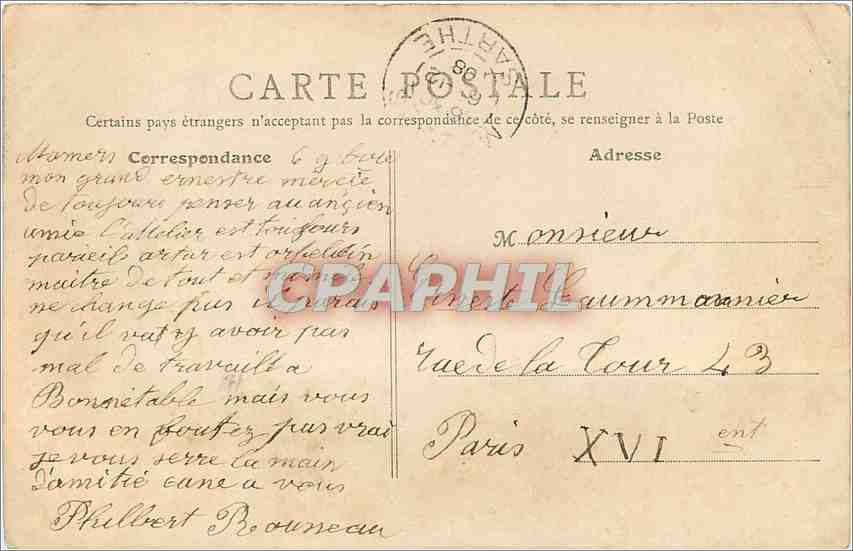 CARTE POSTALE
Certains pays étrangers n'acceptent pas la correspondance de ce côté, se renseigner à la Poste
SARTHE
08
Correspondance
Mamers 6
mon grand ernestre mercie
de toujours penser au ancien
amie l'attelier est toujours
pareils artur est
maitre de tout et
ne change pas il parais
qu'il vat y avoir pas
mal de travaill a
Bonnétable mais vous
vous en foutez pas vrai
je vous serre la main
d'amitié a vous
Philbert Rouneau
Adresse
Monsieur
Ernest Laummonnier
rue de la Tour 43
Paris XVI ent
CPAPHIL